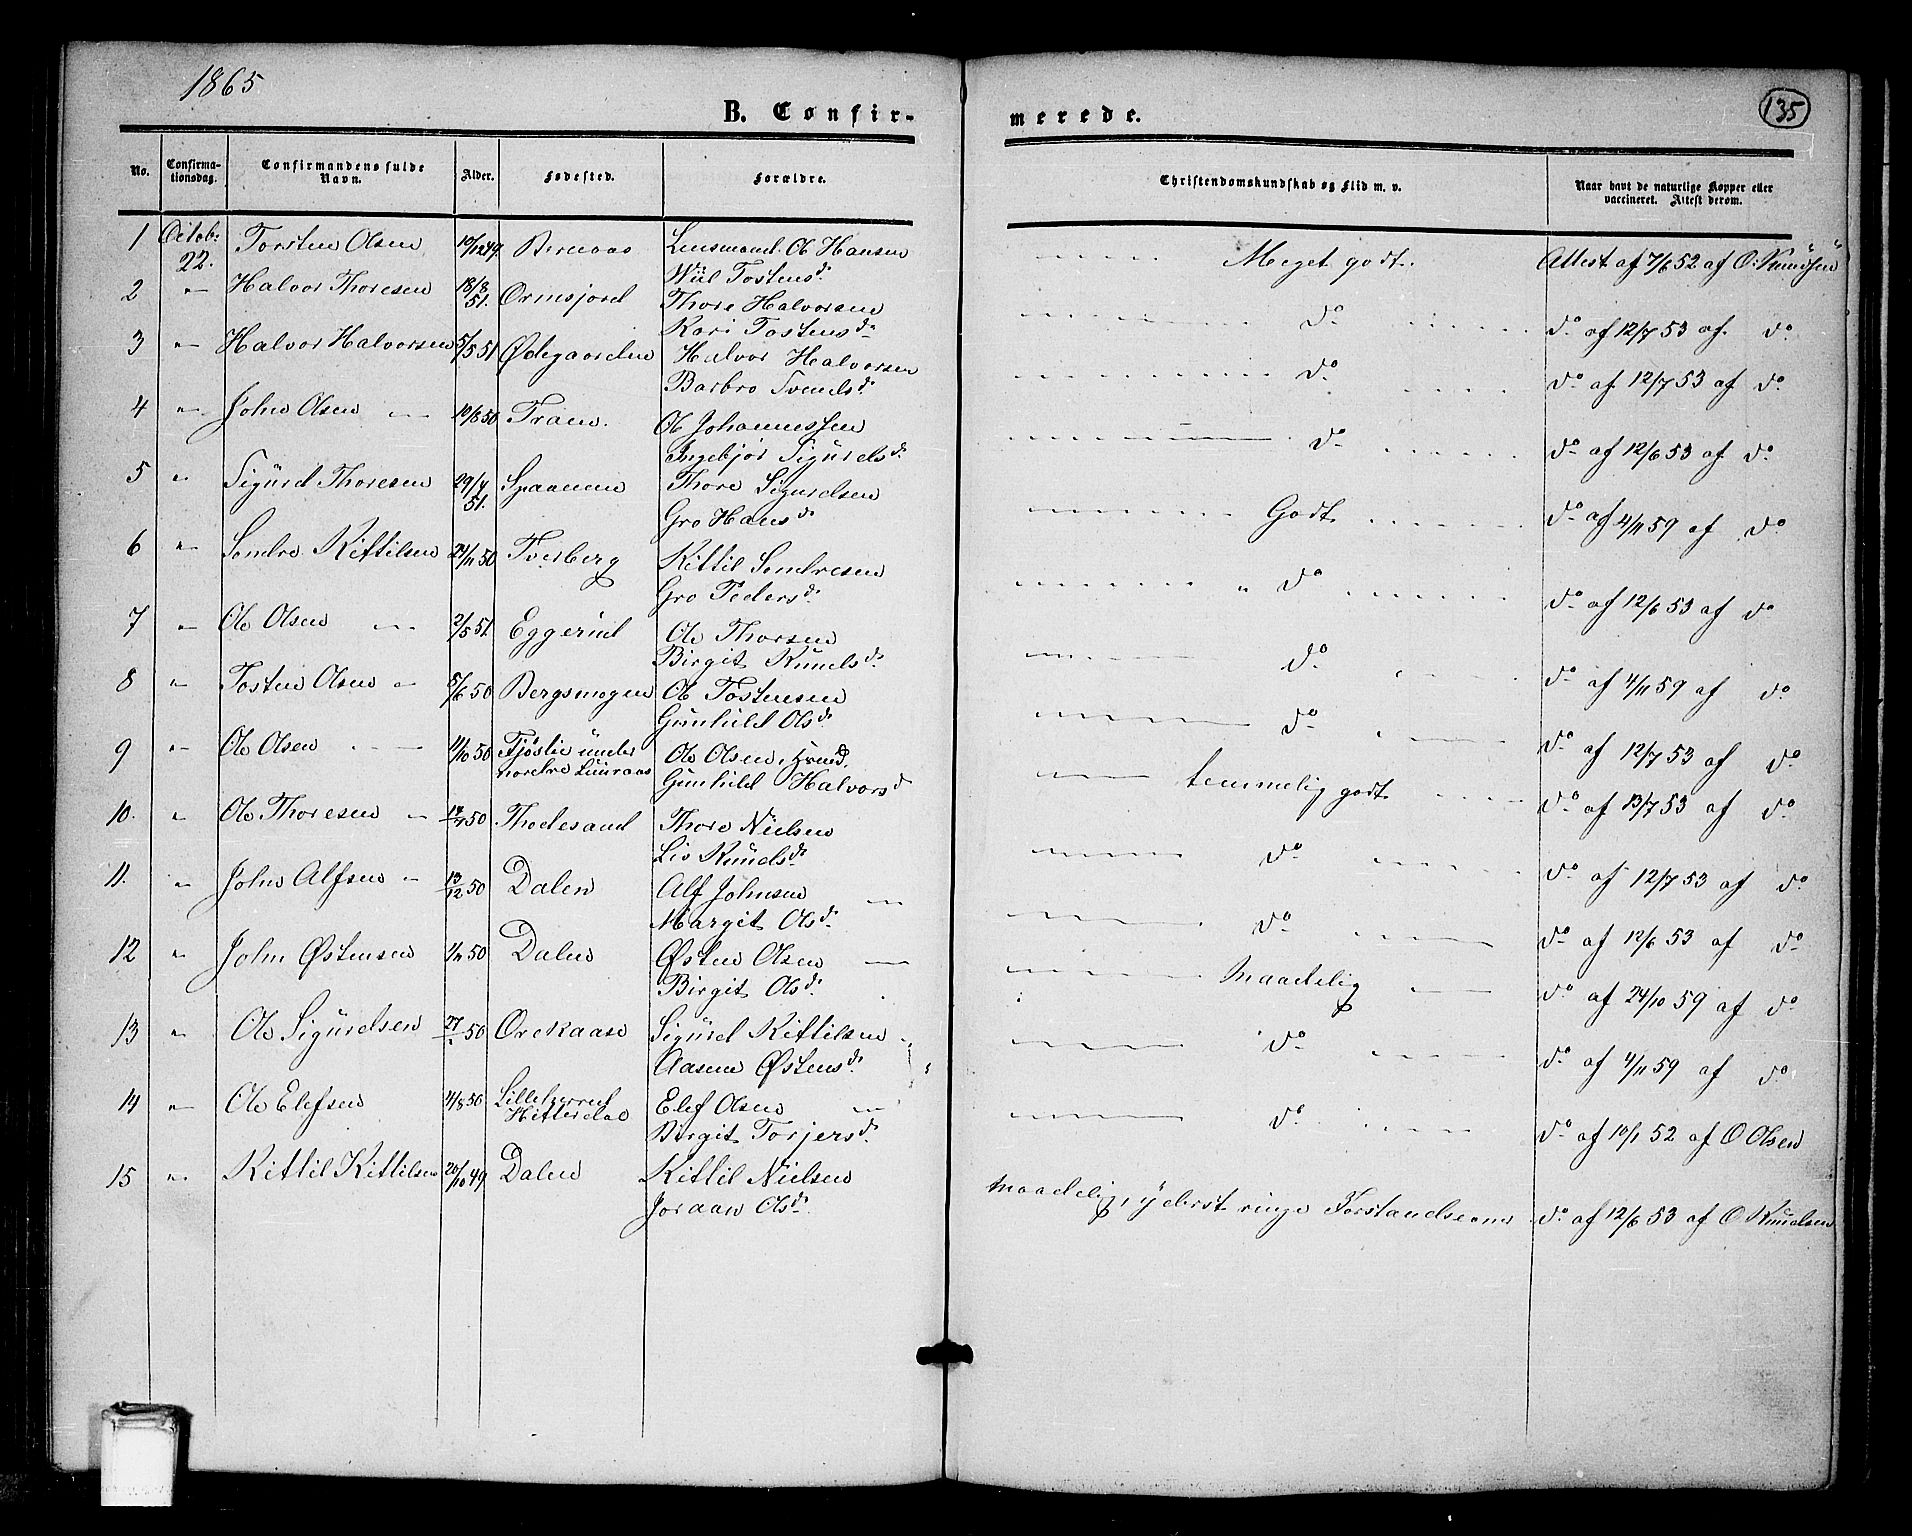 1865
B. Confir-
merede.
135
No.
Confirma-
tionsdag.
Confirmandens fulde
Navn.
Alder.
Fødested.
Forældre.
Christendomskundskab og Flid m. v.
Naar havt de naturlige Kopper eller
vaccineret. Attest derom.
1 Octob: 22. Torsten Olsen 10/12 49. Lensmand Ole Hansen
Meget godt. Attest af 7/6 52 af O: Knudsen
Tostensd.
2 " Halvor Thoresen 18/8 51. Ormsjord Thore Halvorsen
do do af 12/7 53 af do
Kari Tostensd.
3 " Halvor Halvorsen 5/5 51 Ødegaarden Halvor Halvorsen
do do af 12/7 53 af do
Barbro Svendsd.
4 " John Olsen 10/8 50 Tran. Ole Johannessen
do do af 12/6 53 af do
Ingebjør Sigurdsd.
5 " Sigurd Thoresen 29/4 51. Spaanem Thore Sigurdsen
Godt do af 4/11 59 af do
Gro Hansd.
6 " Sondre Kittilsen 24/11 50 Tveberg Kittil Sondresen
do do af 12/6 53 af do
Gro Pedersd.
7 " Ole Olsen 2/5 51. Eggerud Ole Thorsen
do do af 4/11 59 af do
Birgit Knudsd.
8 " Tosten Olsen 5/6 50 Bergsmogen Ole Tostensen
do do af 12/7 53 af do
Gunhild Olsd.
9 " Ole Olsen 11/10 50 Fjøslie under Ole Olsen
temmelig godt do af 13/7 53 af do
nordre Luuraas Gunhild Halvorsd.
10. " Ole Thoresen 50 Thodesand Thore Nielsen
do do af 12/7 53 af do
Liv Knudsd.
11. " John Alfsen 13/12 50 Dalen Alf Johnsen
do do af 12/6 53 af do
Margit Olsd.
12 " John Østensen 1/11 50 Dalen Østen Olsen
Maadelig do af 24/10 59 af do
Birgit Olsd.
13 " Ole Sigurdsen 50 Orekaase Sigurd Kittilsen
do do af 4/11 59 af do
Aasne Østensd.
14 " Ole Elefsen 50 Hitterdal Elef Olsen
do do af 10/1 52 af O Olsen
Birgit Torjersd.
15 " Kittil Kittilsen 20/10 49 Dalen Kittil Nielsen
Maadelig, yderst ringe Forstandsevne do af 12/6 53 af O Knudsen
Joraan Olsd.